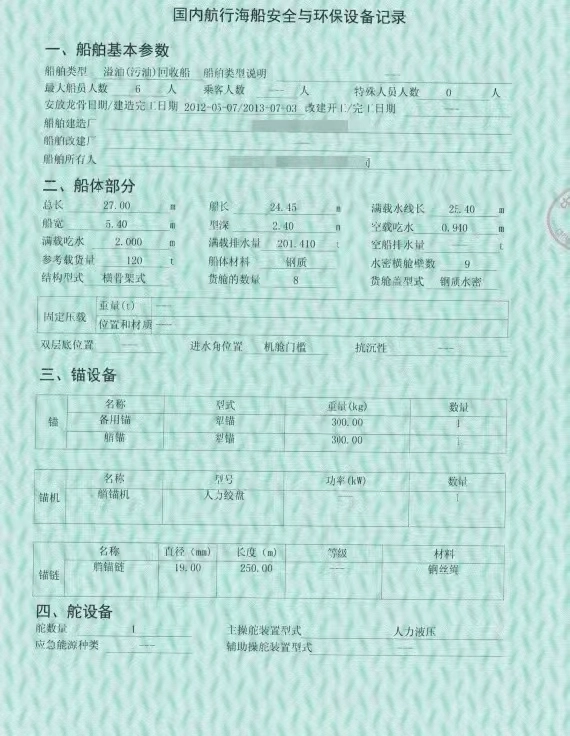 国内航行海船安全与环保设备记录
一、船舶基本参数
船舶类型 溢油(污油)回收船 船舶类型说明 ---
最大船员人数 6 人 乘客人数 --- 人 特殊人员人数 0 人
安放龙骨日期/建造完工日期 2012-05-07/2013-07-03 改建开工/完工日期 ---
船舶建造厂
船舶改建厂 ---
船舶所有人
二、船体部分
总长 27.00 m 船长 24.45 m 满载水线长 25.40 m
船宽 5.40 m 型深 2.40 m 空载吃水 0.940 m
满载吃水 2.000 m 满载排水量 201.410 t 空船排水量 t
参考载货量 120 t 船体材料 钢质 水密横舱壁数 9
结构型式 横骨架式 货舱的数量 8 货舱盖型式 钢质水密
固定压载 重量(t) ---
位置和材质 ---
双层底位置 --- 进水角位置 机舱门槛 抗沉性 ---
三、锚设备
锚 名称 型式 重量(kg) 数量
备用锚 犁锚 300.00 1
艏锚 犁锚 300.00 1
锚机 名称 型号 功率(kW) 数量
艏锚机 人力绞盘 --- 1
锚链 名称 直径(mm) 长度(m) 等级 材料
艏锚链 19.00 250.00 --- 钢丝绳
四、舵设备
舵数量 1 主操舵装置型式 人力液压
应急能源种类 --- 辅助操舵装置型式 ---